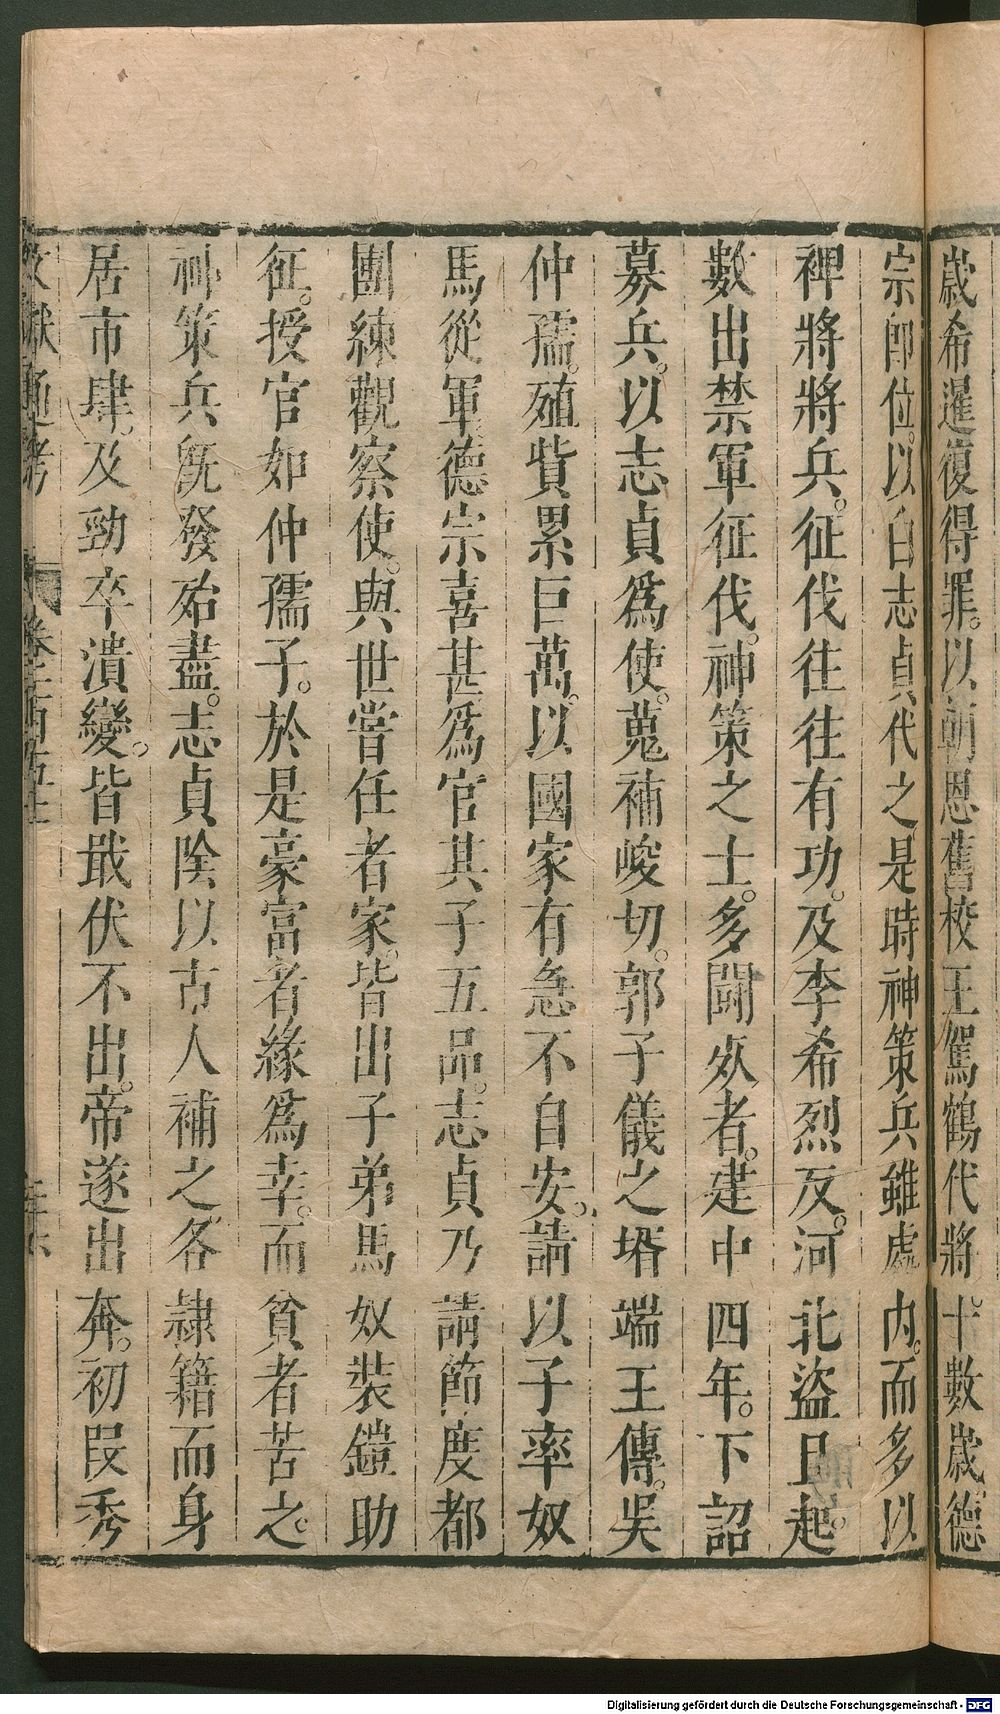 歲希暹復得罪。以朝恩舊校王駕鶴代將。十數歲。德
宗卽位。以白志貞代之。是時神策兵雖處內。而多以
裨將將兵。征伐往往有功。及李希烈反。河北盜且起。
數出禁軍征伐。神策之士。多鬭死者。建中四年。下詔
募兵。以志貞爲使。蒐補峻切。郭子儀之壻端王傳。吳
仲孺。殖貲累巨萬。以國家有急不自安。請以子率奴
馬從軍德宗喜甚爲官其子五品。志貞乃請節度都
團練觀察使。與世嘗任者家。皆出子弟馬奴裝鎧助
征。授官如仲孺子。於是豪富者緣爲幸。而貧者苦之。
神策兵旣發殆盡。志貞陰以古人補之名隸籍而身
居市肆。及勁卒潰變。皆戢伏不出。帝遂出奔。初段秀
文獻通考 卷一百五十 三六
Digitalisierung gefördert durch die Deutsche Forschungsgemeinschaft - DFG